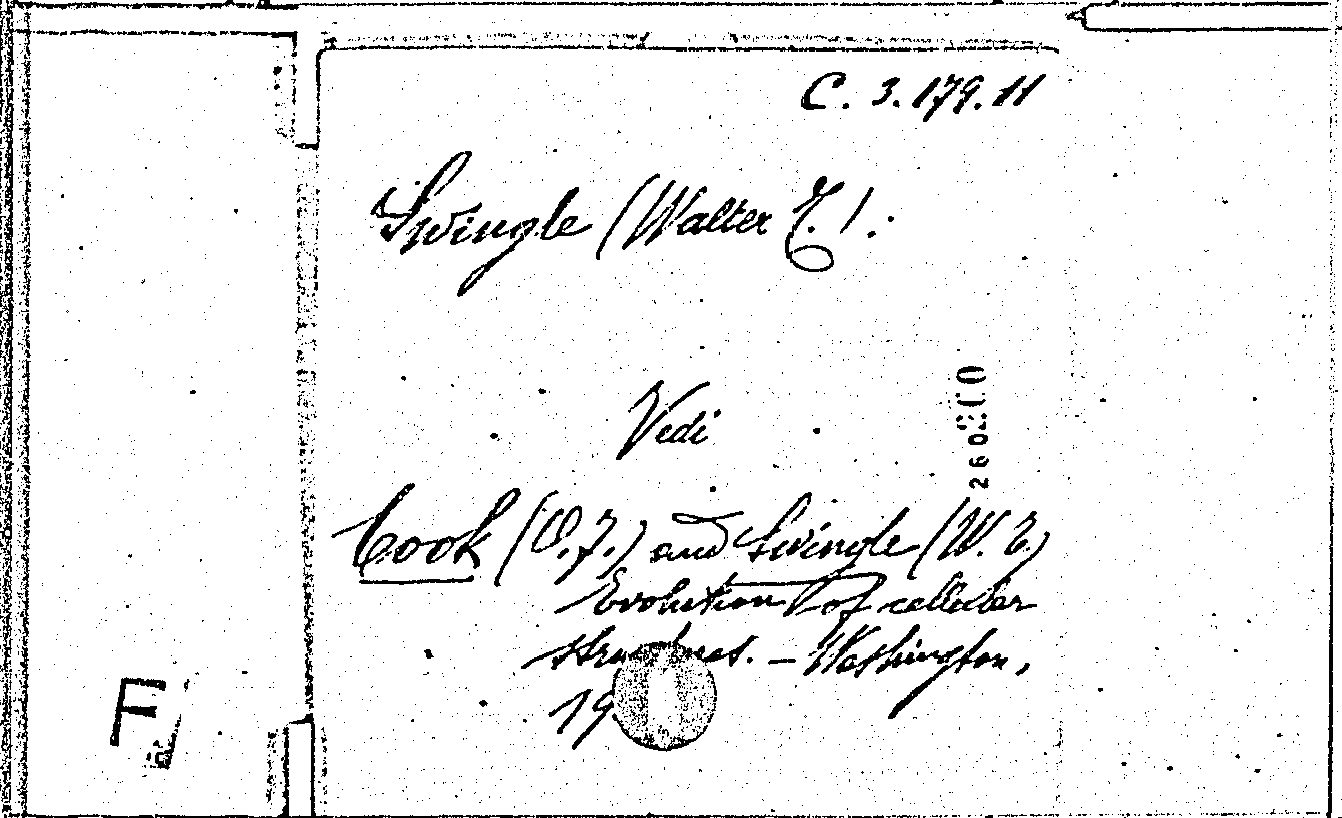 C. 3.179.11
Swingle (Walter T.).
Vedi
Cook (O.F.) and Swingle (W.T.)
Evolution of cellular
structures. – Washington,
19
F